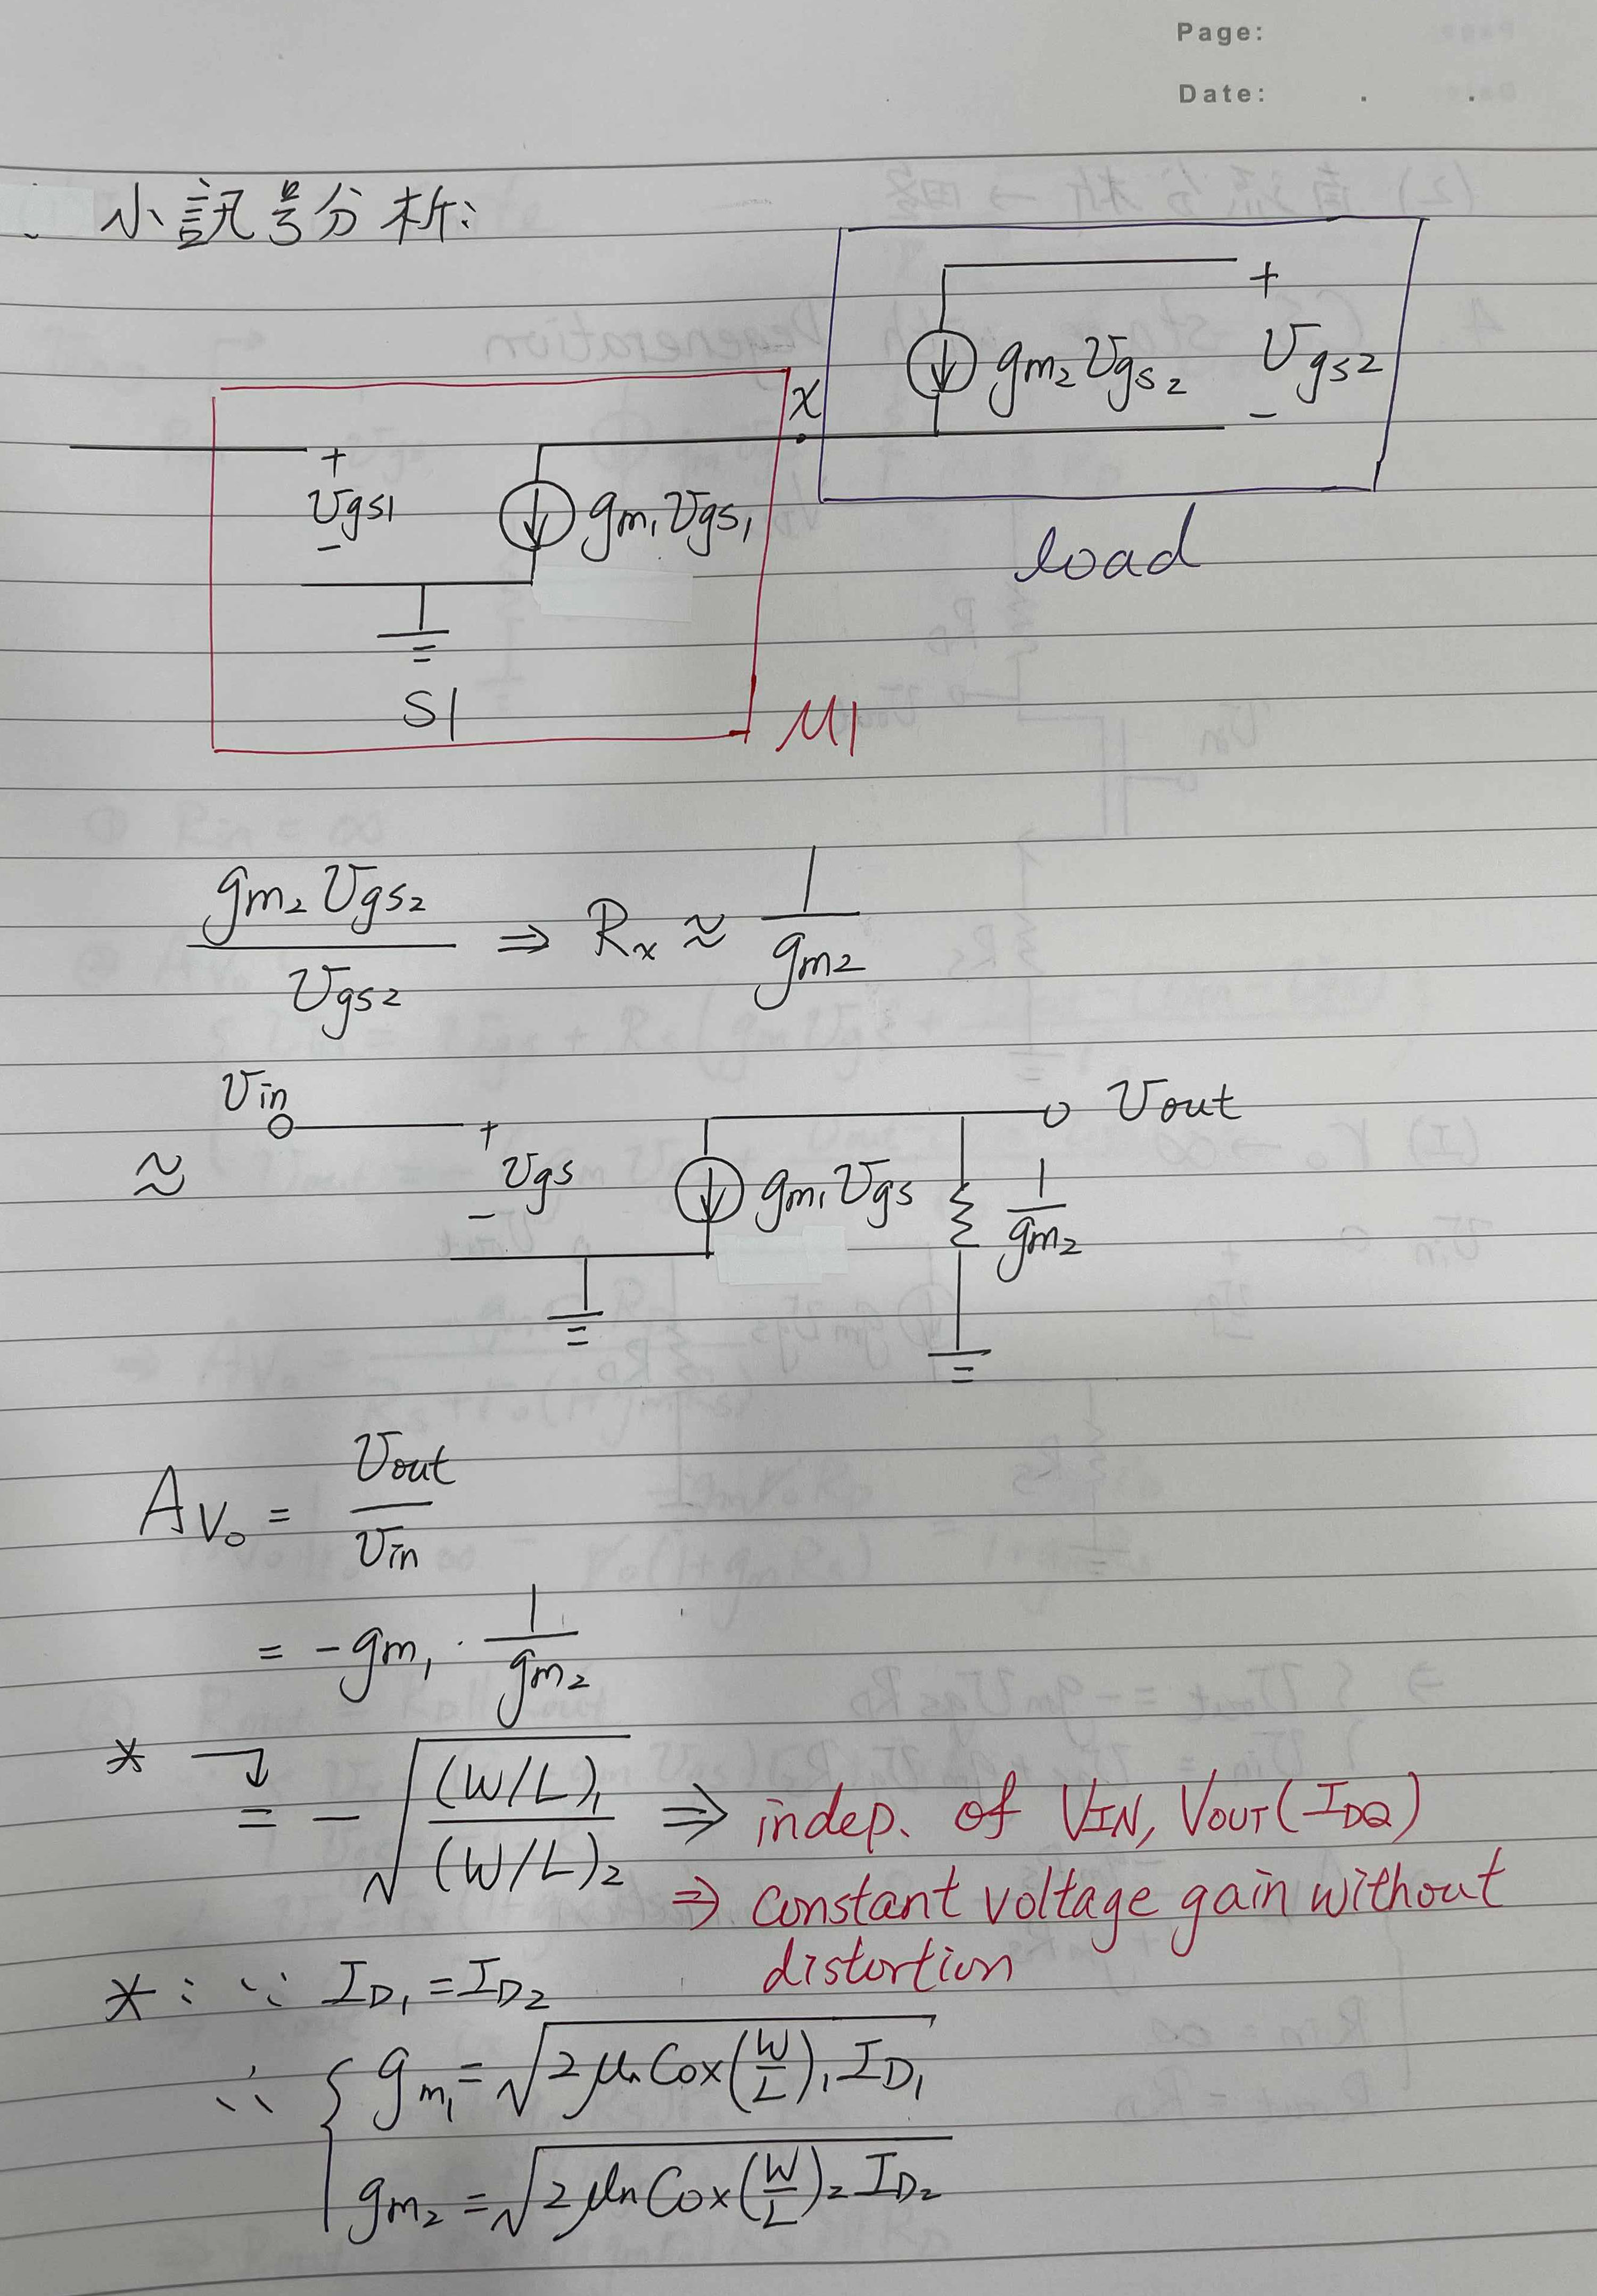 Page:
Date: . .
小訊号分析:
+
gm₂Vgs₂ Vgs2
-
x
+
Vgs1 gm₁Vgs₁
-
load
S1
M1
gm₂Vgs₂/Vgs₂ ⇒ Rx ≈ 1/gm₂
Vin Vout
≈ + Vgs - gm₁Vgs 1/gm₂
Av₀ = Vout/Vin
= -gm₁ · 1/gm₂
* = -√((W/L)₁/(W/L)₂) ⇒ indep. of VIN, VOUT(IDQ)
⇒ constant voltage gain without
distortion
*: ∵ ID₁ = ID₂
∴ { gm₁ = √(2μnCox(W/L)₁ID₁)
gm₂ = √(2μnCox(W/L)₂ID₂)